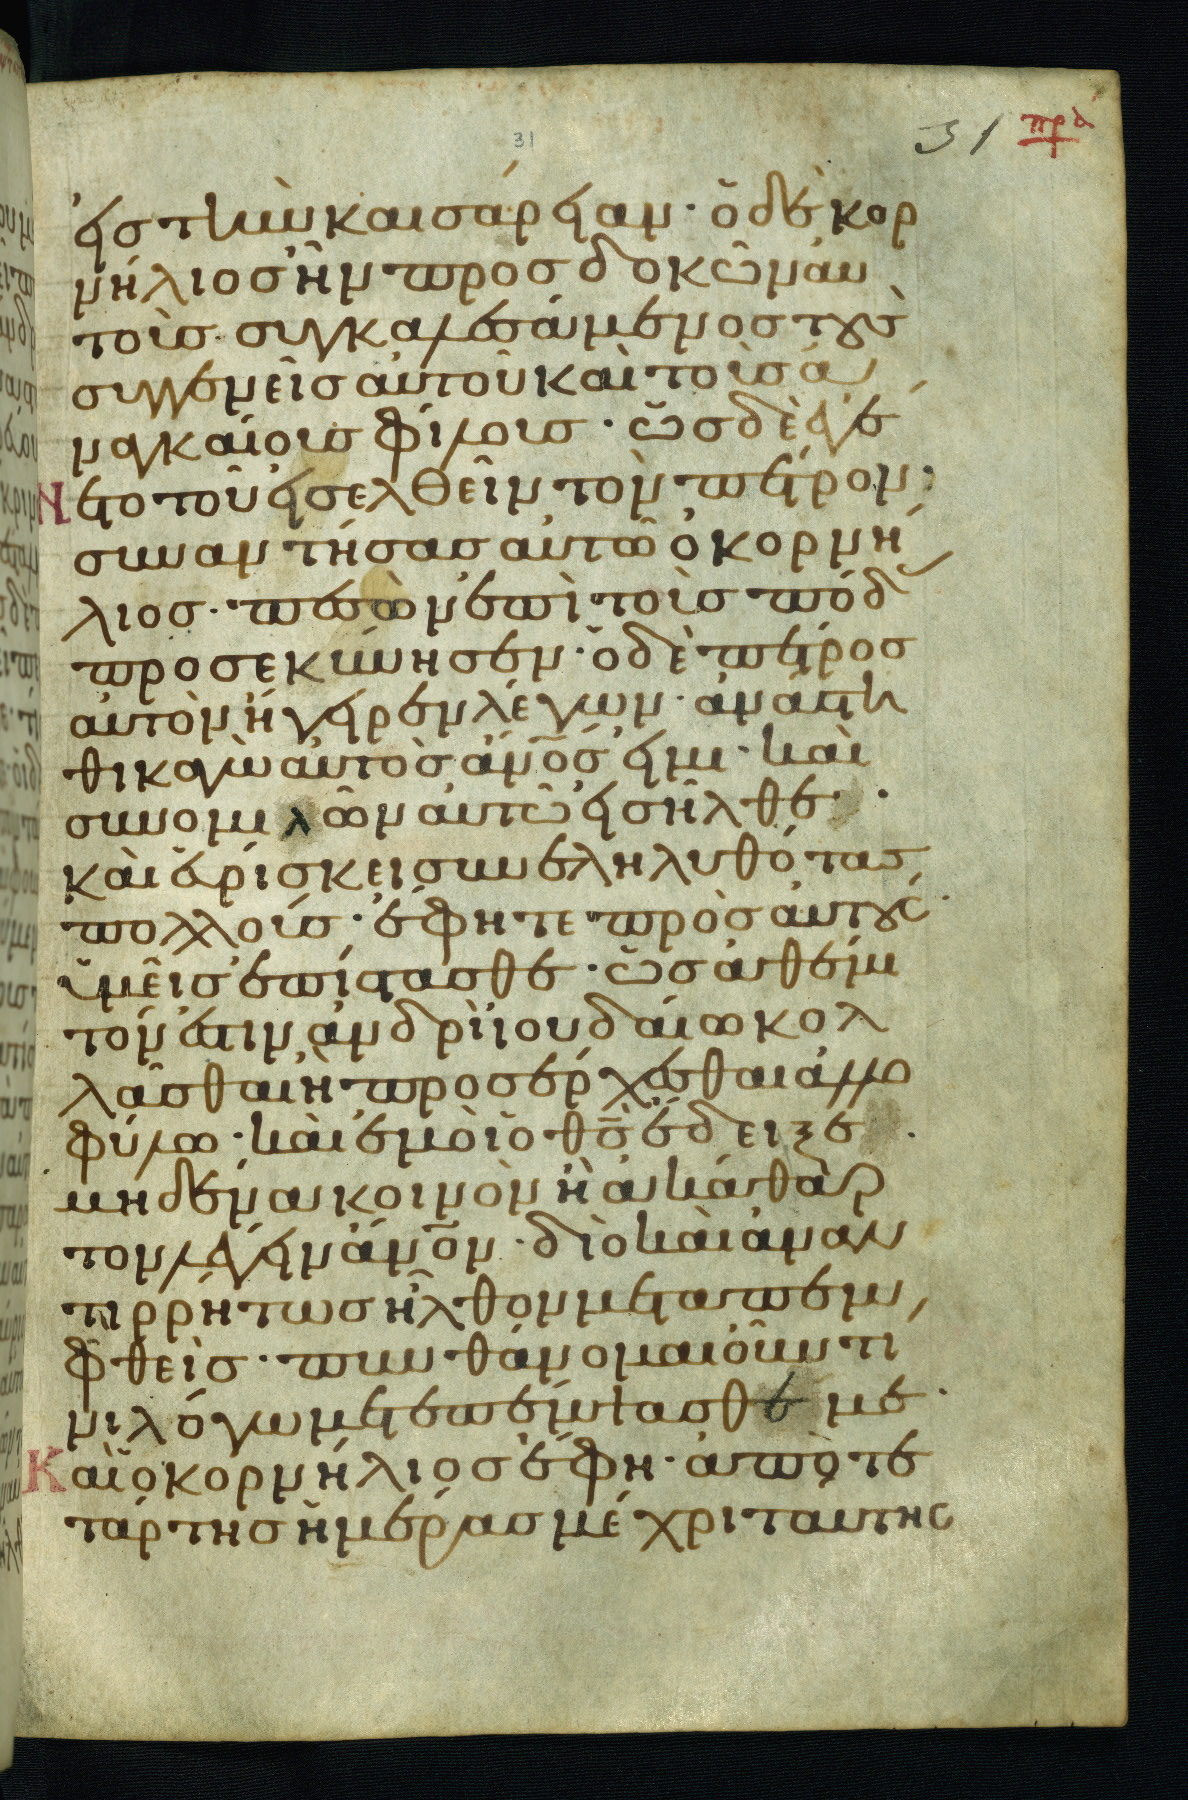 31
31 πρα
εἰς τὴν καισάρειαν· ὁ δὲ κορ
νήλιος ἦν προσδοκῶν αὐ
τοὺς συγκαλεσάμενος τοὺς
συγγενεῖς αὐτοῦ καὶ τοὺς ἀ
ναγκαίους φίλους· ὡς δὲ ἐγέ
νετο τοῦ εἰσελθεῖν τὸν πέτρον·
συναντήσας αὐτῶ ὁ κορνή
λιος· πεσὼν ἐπὶ τοὺς πόδ
προσεκύνησεν· ὁ δὲ πέτρος
αὐτὸν ἤγειρεν λέγων· ἀνάστη
θι κἀγὼ αὐτὸς ἄνος εἰμι· καὶ
συνομιλῶν αὐτῶ εἰσῆλθε·
καὶ εὑρίσκει συνεληλυθότας
πολλούς· ἔφη τε πρὸς αὐτούς·
ὑμεῖς ἐπίστασθε· ὡς ἀθέμι
τόν ἐστιν ἀνδρὶ ἰουδαίω κολ
λᾶσθαι ἢ προσέρχεσθαι ἀλλο
φύλω· καὶ ἐμοὶ ὁ θς ἔδειξε·
μηδένα κοινὸν ἢ ἀκάθαρ
τον λέγειν ἄνον· διὸ καὶ ἀναν
τιρρήτως ἦλθον μεταπεμ
φθεὶς· πυνθάνομαι οὖν τί
νι λόγω μετεπέμψασθέ με·
Καὶ ὁ κορνήλιος ἔφη· ἀπὸ τε
τάρτης ἡμέρας μέχρι ταύτης